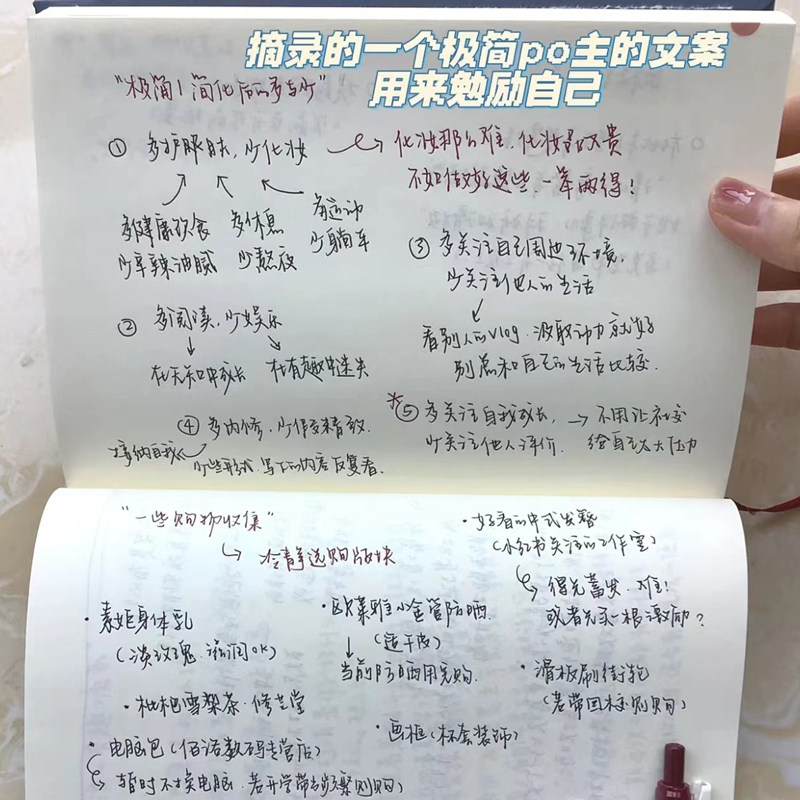 摘录的一个极简po主的文案
用来勉励自己
"极简|简化后的多与少"
① 多护肤, 少化妆
化妆那么难, 化妆品又贵
不如做好这些, 一举两得!
多健康饮食
少辛辣油腻
多休息
少熬夜
多运动
少躺平
② 多阅读, 少娱乐
在无知中成长
在有趣中迷失
③ 多关注自己周边环境,
少关注他人的生活
看别人的vlog, 汲取动力就好
别总和自己的生活比较.
④ 多内修, 少
接纳自我
少些形式, 写下的内容反复看.
*⑤ 多关注自我成长,
少关注他人评价.
→ 不用让社交
给自己太大压力
"一些购物收集"
冷静选购版块
· 素姬身体乳
(淡玫瑰. 滋润OK)
· 枇杷雪梨茶·修芝堂
· 电脑包(佰诺数码专营店)
暂时不换电脑. 若开学带去频繁则购)
· 欧莱雅小金管防晒
(适干皮)
当前防晒用完购.
· 画框(杯套装饰)
· 好看的中式发簪
(小红书关注的工作室)
得先蓄发. 难!
或者先买一根激励?
· 滑板刷街轮
(若带回板则购)